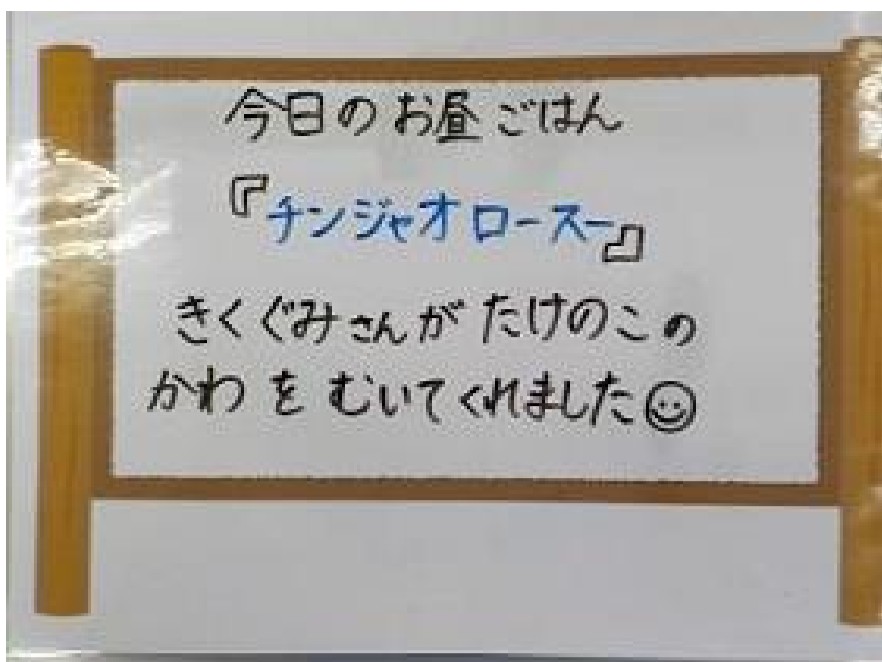 今日のお昼ごはん
『チンジャオロースー』
きくぐみさんがたけのこの
かわをむいてくれました☺